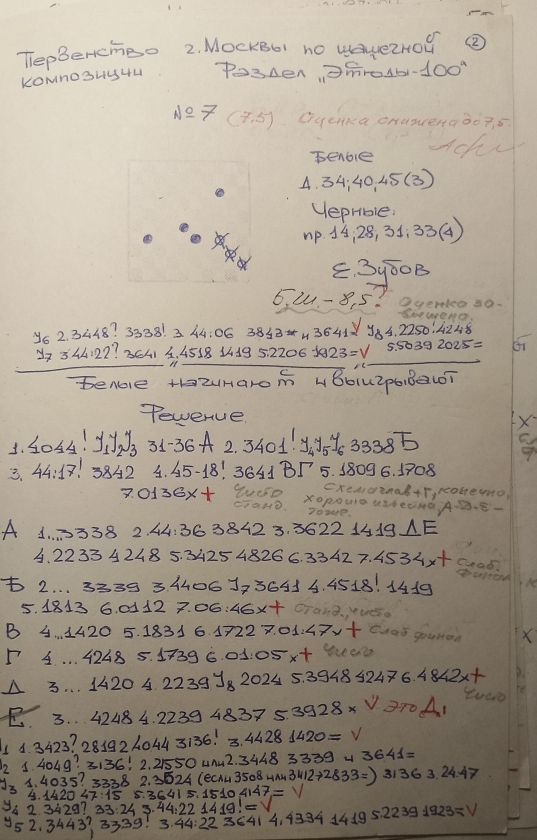 Первенство г. Москвы по шашечной ②
композиции Раздел „Этюды-100"
№7 (7,5) Оценка снижена до 7,5.
Белые
Д. 34; 40, 45 (3)
Черные:
пр. 14; 28, 31; 33 (4)
Е. Зубов
Б.Ш. – 8,5? Оценка завышена.
У6 2.3448? 3338! 3.44:06 3843 и 3641= V У8 4.2250! 4248
У7 3.44:22? 3641 4.4518 1419 5.2206 1923= V 5.5039 2025=
Белые начинают и выигрывают
Решение.
1.4044! У1У2У3 31-36 А 2.3401! У4У5У6 3338 Б
3. 44:17! 3842 4.45-18! 3641 ВГ 5.1809 6.1708
7.0136x+ Чисто станд. Схема глав+Г, конечно, хорошо известна, А-Д-Б- тоже.
А 1...3338 2.44:36 3842 3.3622 1419 ДЕ
4.2233 4248 5.3425 4826 6.3342 7.4534x+ Слаб. финал
Б 2... 3339 3.4406 У7 3641 4.4518! 1419
5.1813 6.0112 7.06:46x+ Станд., чисто
В 4...1420 5.1831 6.1722 7.01:47x+ Слаб финал
Г 4... 4248 5.1739 6.01:05x+ Чисто
Д 3... 1420 4.2239 У8 2024 5.3948 4247 6.4842x+ Чисто
Е. 3...4248 4.2239 4837 5.3928x V Это Д1
У1 1.3423? 2819 2.4044 3136! 3.4428 1420= V
У2 1.4049? 3136! 2.2150 или 2.3448 3339 и 3641=
У3 1.4035? 3338 2.3524 (если 3508 или 3412+2833=) 3136 3.2447
4.1420 47:15 5.3641 5.1510 4147= V
У4 2.3429? 33:24 3.44:22 1419!= V
У5 2.3443? 3339! 3.44:22 3641 4.4334 1419 5.2239 1923= V